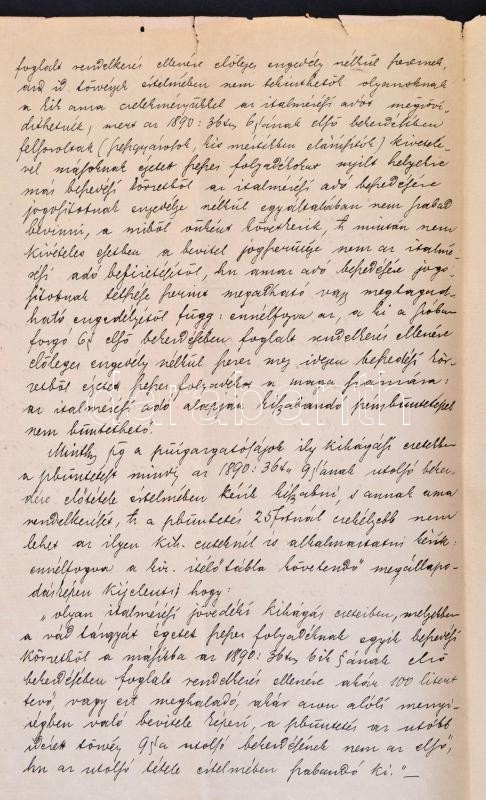 foglalt rendelkezés ellenére előleges engedély nélkül szereznek,
id. törvények értelmében nem tekinthetők olyanoknak
a kik ama cselekményükkel az italmérési adót megrövi-
dithetnék, mert az 1890: 36 tcz 6 §ának első bekezdésében
felsoroltak kivételé-
vel másoknak égetett szeszes folyadékokat nyílt helyekre
más beszedési körzetből az italmérési adó beszedésére
jogosítottnak engedélye nélkül egyáltalában nem szabad
bevinni, a miből önként következik, h miután nem
kivételes esetben a bevitel jogszerűsége nem az italmé-
rési adó befizetésétől, hn amaz adó beszedésére jogo-
sítottnak tetszése szerint megadható vagy megtagad-
ható engedélyétől függ: ennélfogva az, a ki a szóban
forgó 6 § első bekezdésében foglalt rendelkezés ellenére
előleges engedély nélkül szerez meg idegen beszedési kör-
zetből égetett szeszes folyadékot a maga számára:
az italmérési adó alapján kiszabandó pénzbüntetéssel
nem büntethető.
Minthogy így a ily kihágási esetekben
a pbüntetést mindig az 1890: 36 tcz 9 §ának utolsó beke-
dése előtétele értelmében kérik kiszabni, s annak ama
rendelkezését, h a pbüntetés 25 frtnál csekélyebb nem
lehet az ilyen kih. eseteknél is alkalmaztatni kérik:
ennélfogva a kir. itélő tábla követendő megállapo-
dásképen kijelenti hogy:
"olyan italmérési jövedéki kihágás eseteiben, melyekben
a vád tárgyát égetett szeszes folyadéknak egyik beszedési
körzetből a másikba az 1890: 36 tcz 6ik §ának első
bekezdésében foglalt rendelkezés ellenére akár 100 litert
tevő, vagy ezt meghaladó, akár azon alóli mennyi-
ségben való bevitele képezi, a pbüntetés az utóbb
idézett törvény 9 §a utolsó bekezdésének nem az első,
hn az utolsó tétele értelmében szabandó ki." —
darabanth